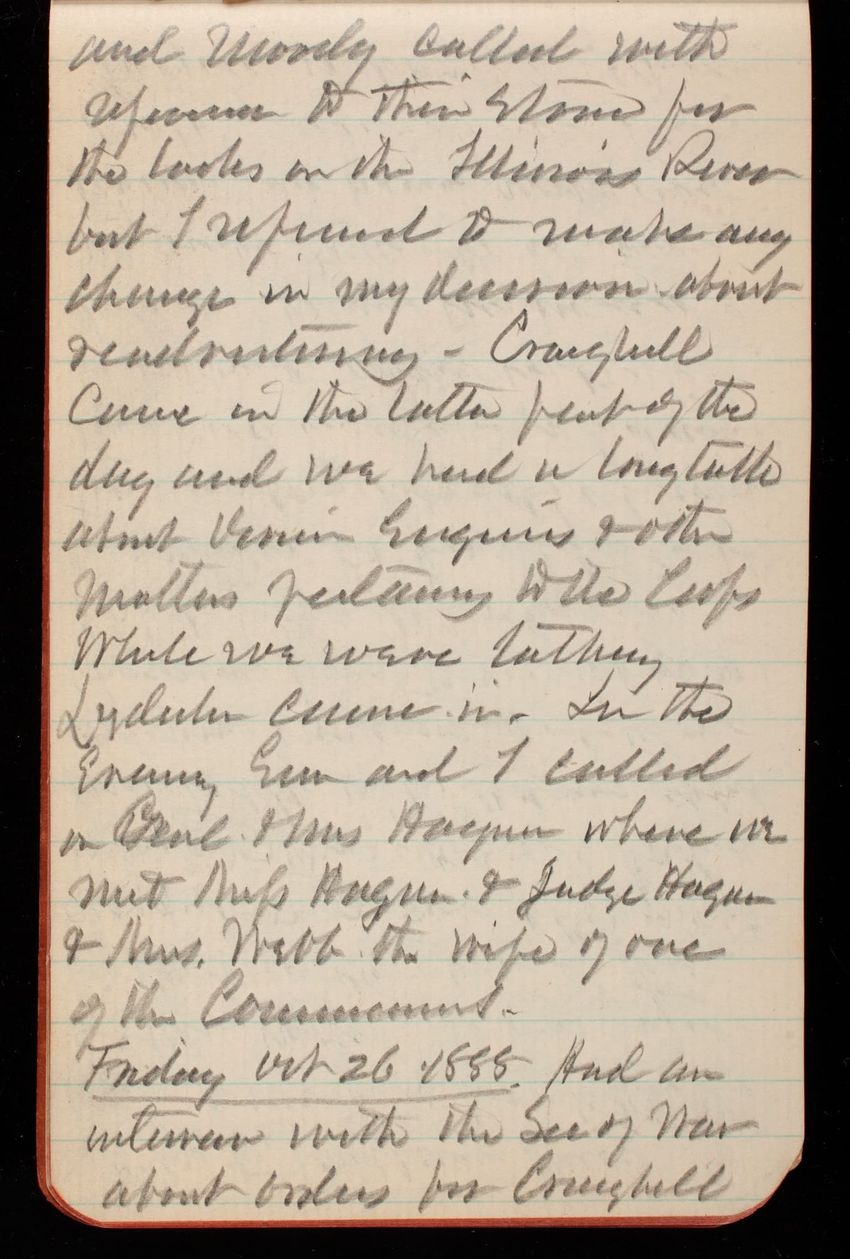 and Moody called with
reference to their stone for
the locks on the Illinois River
but I refused to make any
change in my decision about
readvertising - Craighill
Came in the latter part of the
day and we had a long talk
about Engineers & other
Matters pertaining to the Corps
While we were talking
Lydecker came in. In the
Evening Em and I called
on Genl & Mrs Hagner where we
met Miss Hagner & Judge Hagner
& Mrs. Webb the wife of one
of the
Friday Oct 26 1888. Had an
interview with the Sec of War
about orders for Craighill